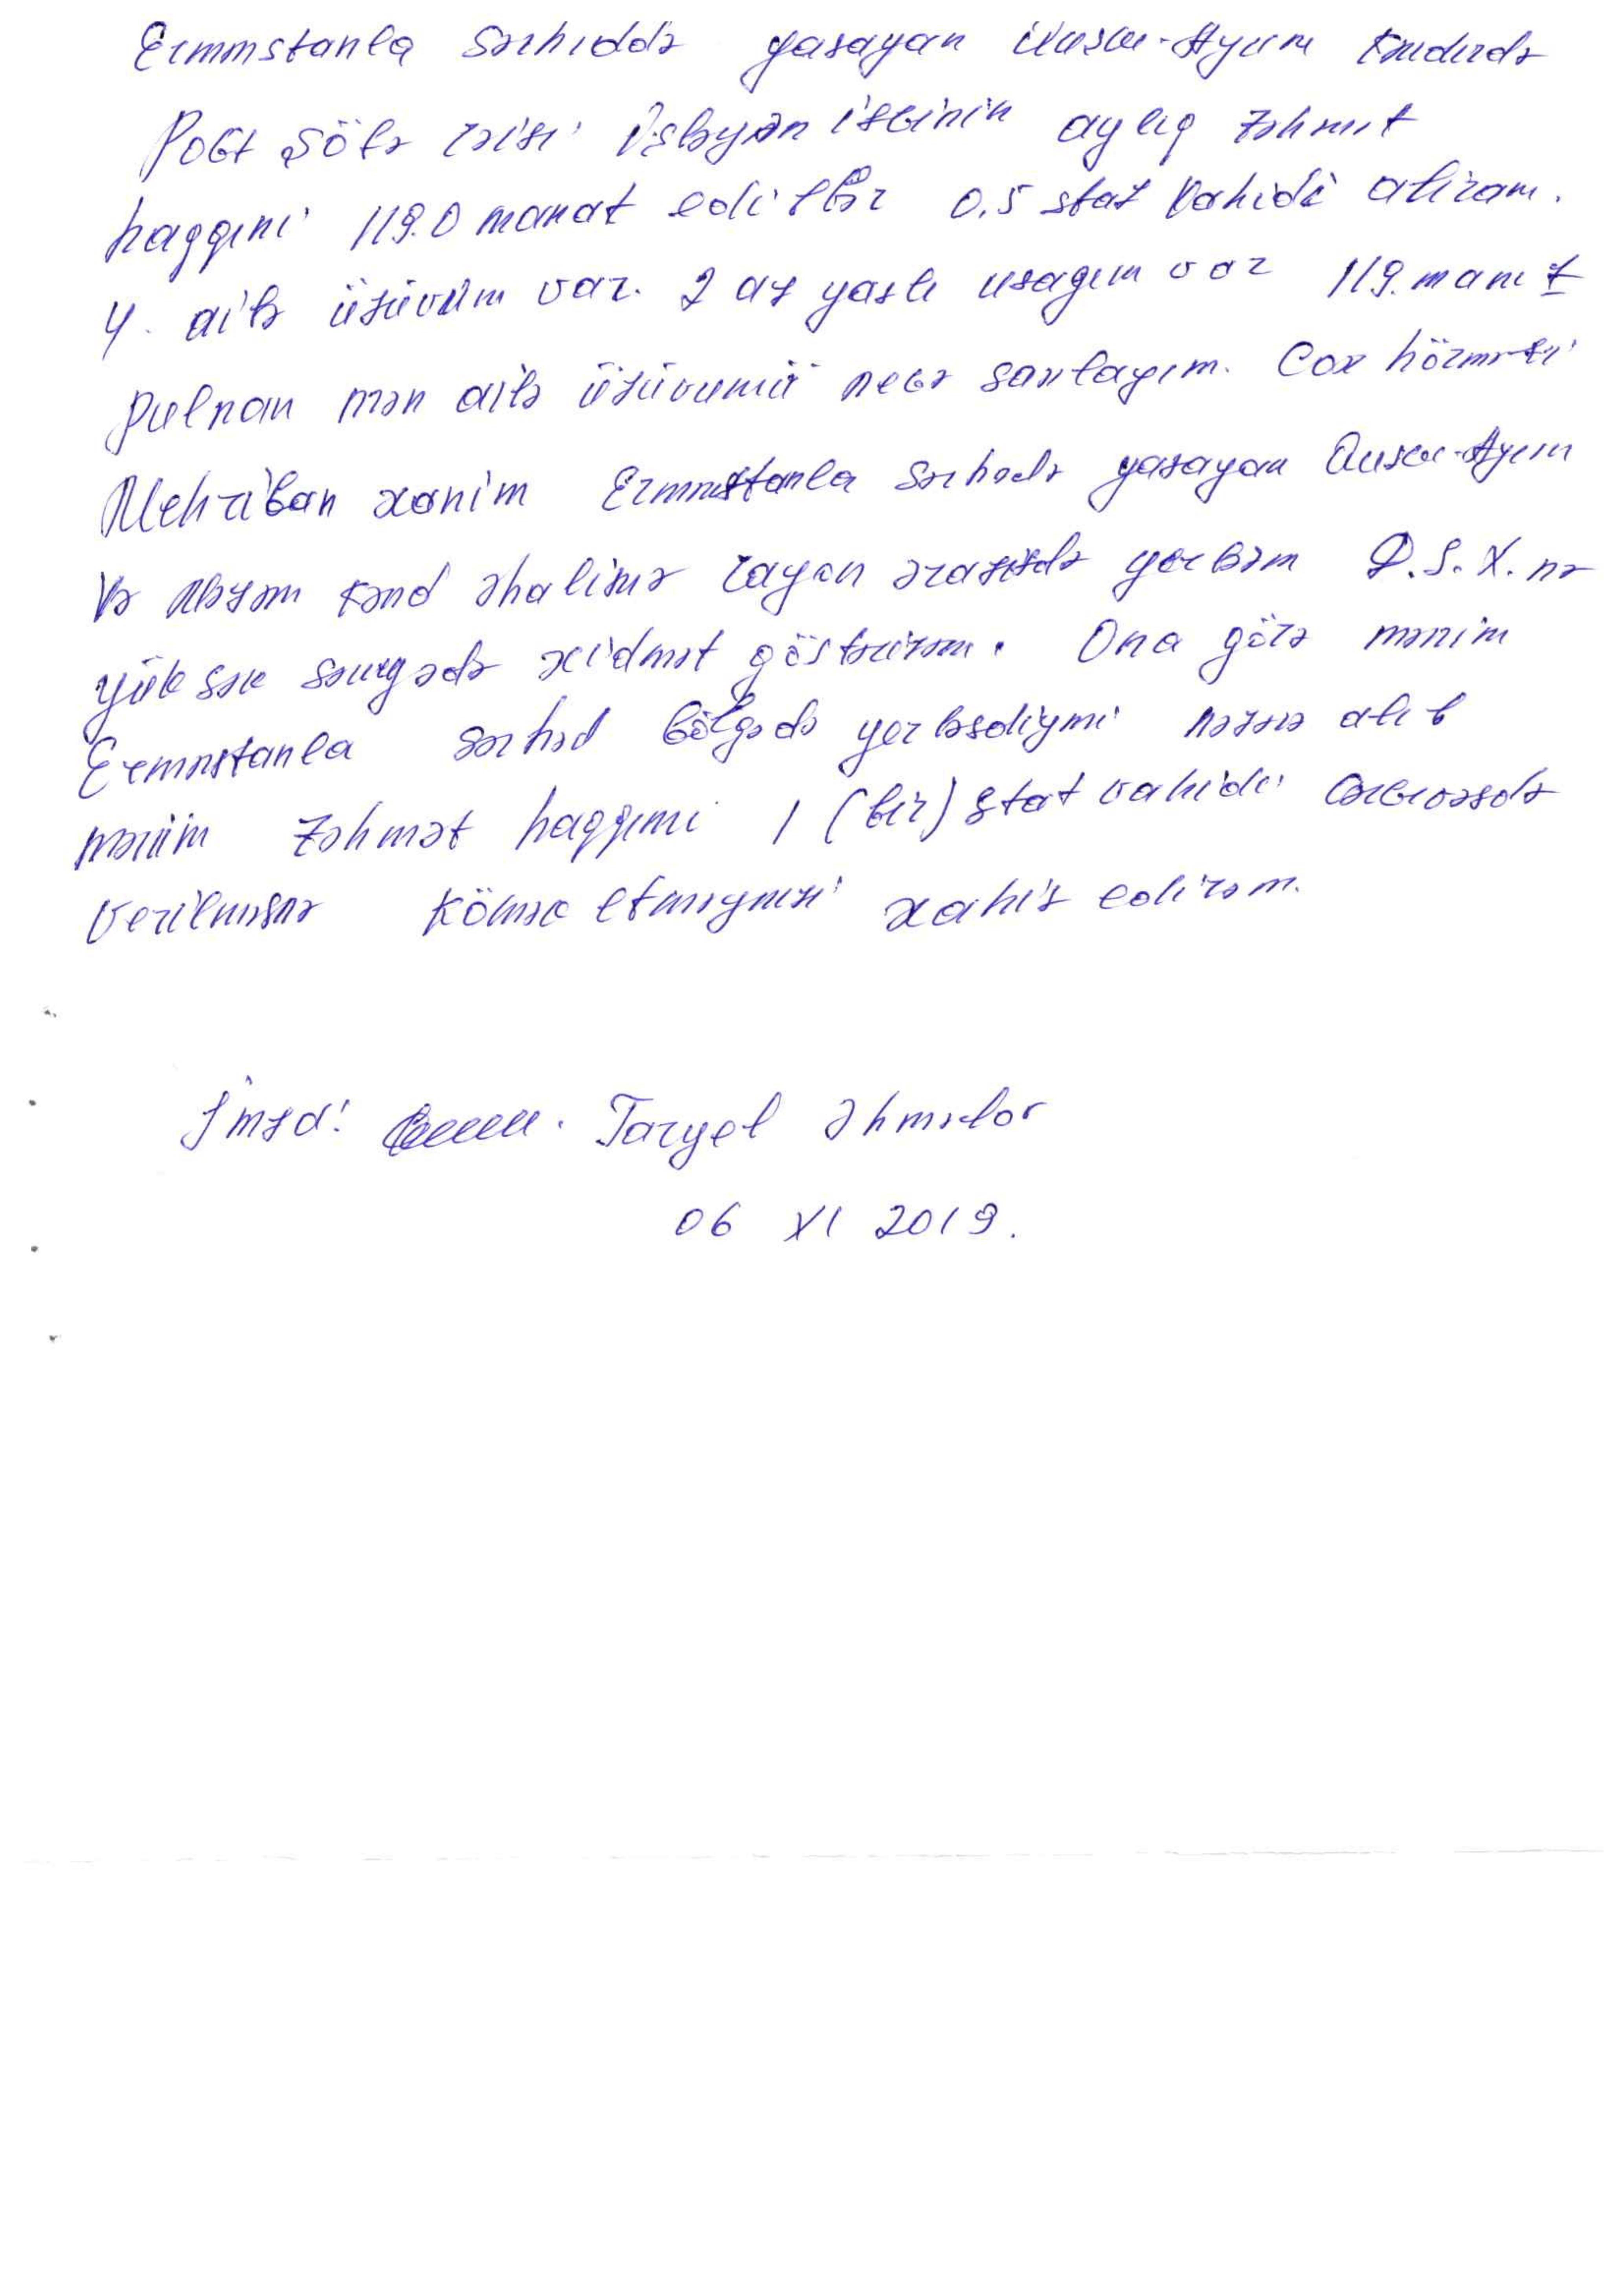 Ermnistanla sərhəddə yasayan Quscu-Ayrım kəndində
Poct şöbə rəisi İşləyən iscinin aylıq zəhmət
haqqını 119.0 manat ediblər 0.5 stat vahidi alıram.
4. ailə üzüvüm var. 2 az yaslı usagım var 119. manat
pulnan mən ailə üzüvumü necə saxlayım. Cox hörmətli
Mehriban xanim Ermnistanla sərhədə yasayan Quscu-Ayrım
Və əhalisinə rayon ərazisdə yerləsəm D.S.X. nə
yüksək səviyədə xidmət göstərirəm. Ona görə mənim
Ermnistanla sərhəd bölgədə yerləsdiymi nəzərə alıb
mənim zəhmət haqqımi 1 (bir) ştat vahidi cərcivəsdə
verilməsnə kömək etməynizi xahis edirəm.
İmza: Taryel Əhmədov
06 XI 2019.